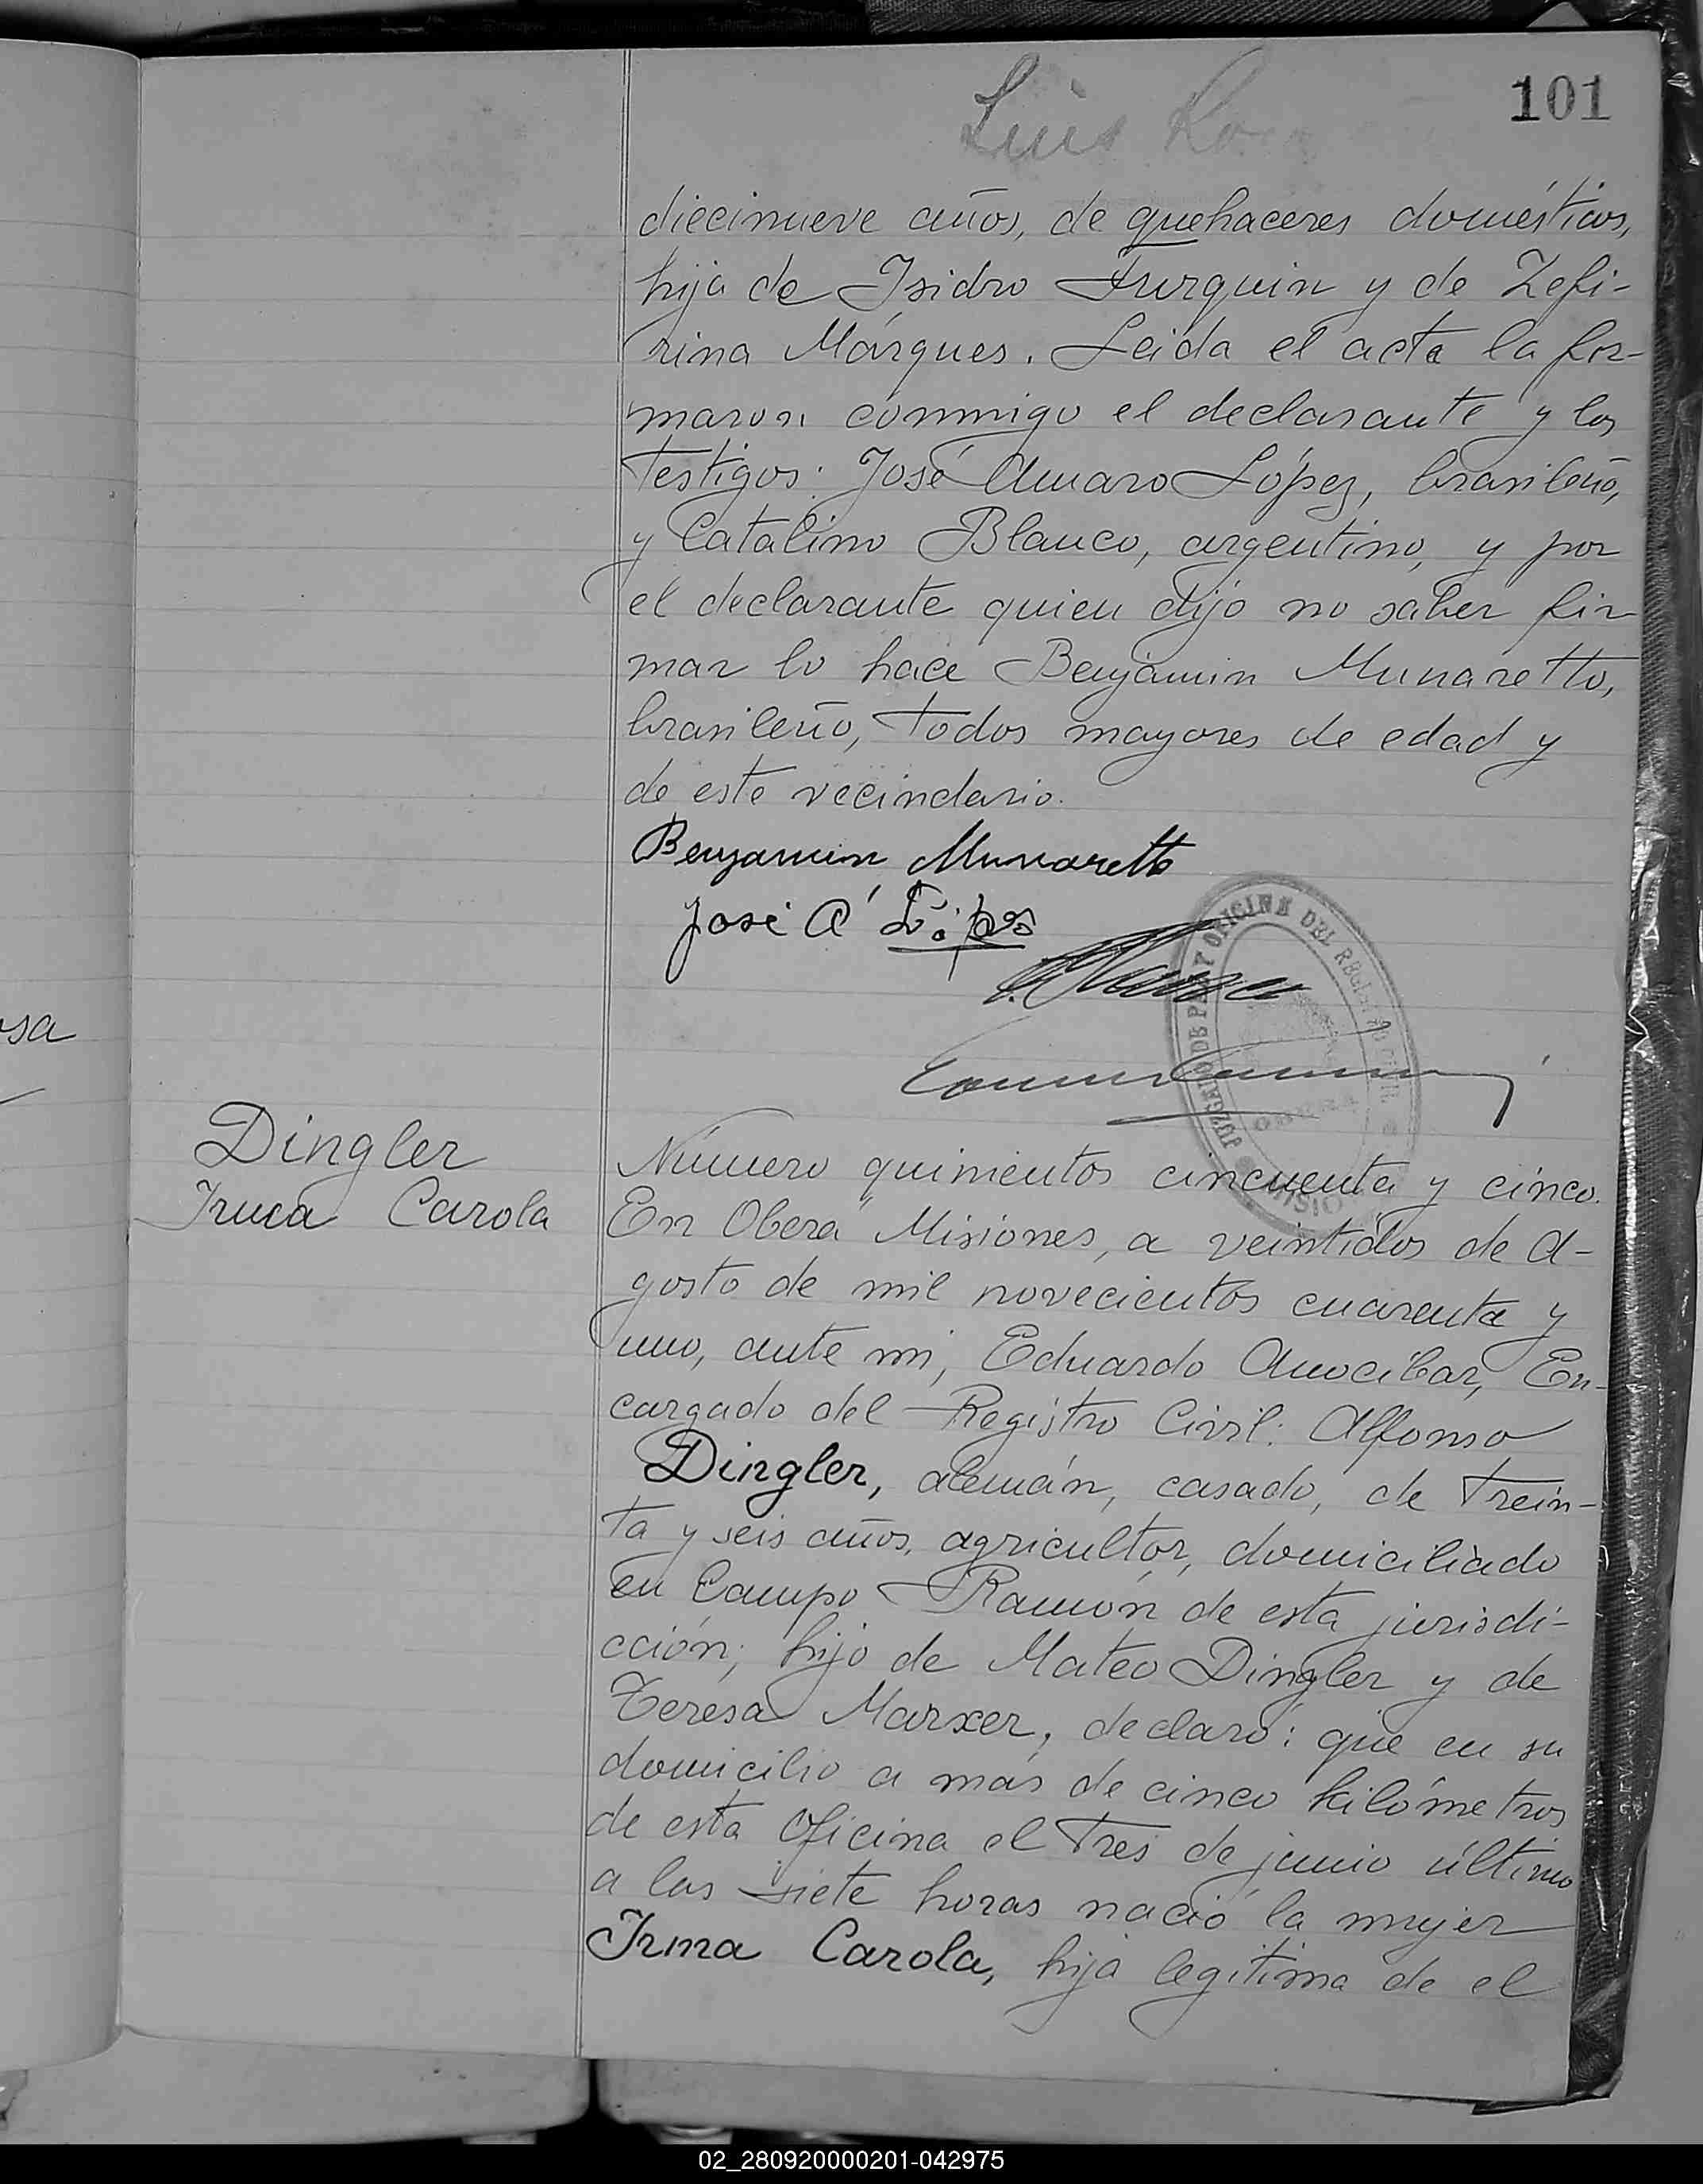 101
Luis
diecinueve años, de quehaceres domésticos,
hija de Isidro Furquin y de Zefi-
rina Márques. Leida el acta la fir-
maron conmigo el declarante y los
testigos: José Amaro López, brasileño,
y Catalino Blanco, argentino, y por
el declarante quien dijo no saber fir
mar lo hace Benjamin Munaretto,
brasileño, todos mayores de edad y
de este vecindario.
Benjamin Munaretto
José A López
JUZGADO DE PAZ Y OFICINA DEL REGISTRO CIVIL
OBERA
MISIONES
osa
Dingler
Irma Carola
Número quinientos cincuenta y cinco.
En Oberá Misiones, a veintidos de A-
gosto de mil novecientos cuarenta y
uno, ante mi, Eduardo Amocibar, En-
cargado del Registro Civil: Alfonso
Dingler, alemán, casado, de trein-
ta y seis años, agricultor, domiciliado
en Campo Ramón de esta jurisdi-
cción; hijo de Mateo Dingler y de
Teresa Marxer, declaró: que en su
domicilio a más de cinco kilómetros
de esta oficina el tres de junio último
a las siete horas nació la mujer
Irma Carola, hija legitima de el
02_280920000201-042975